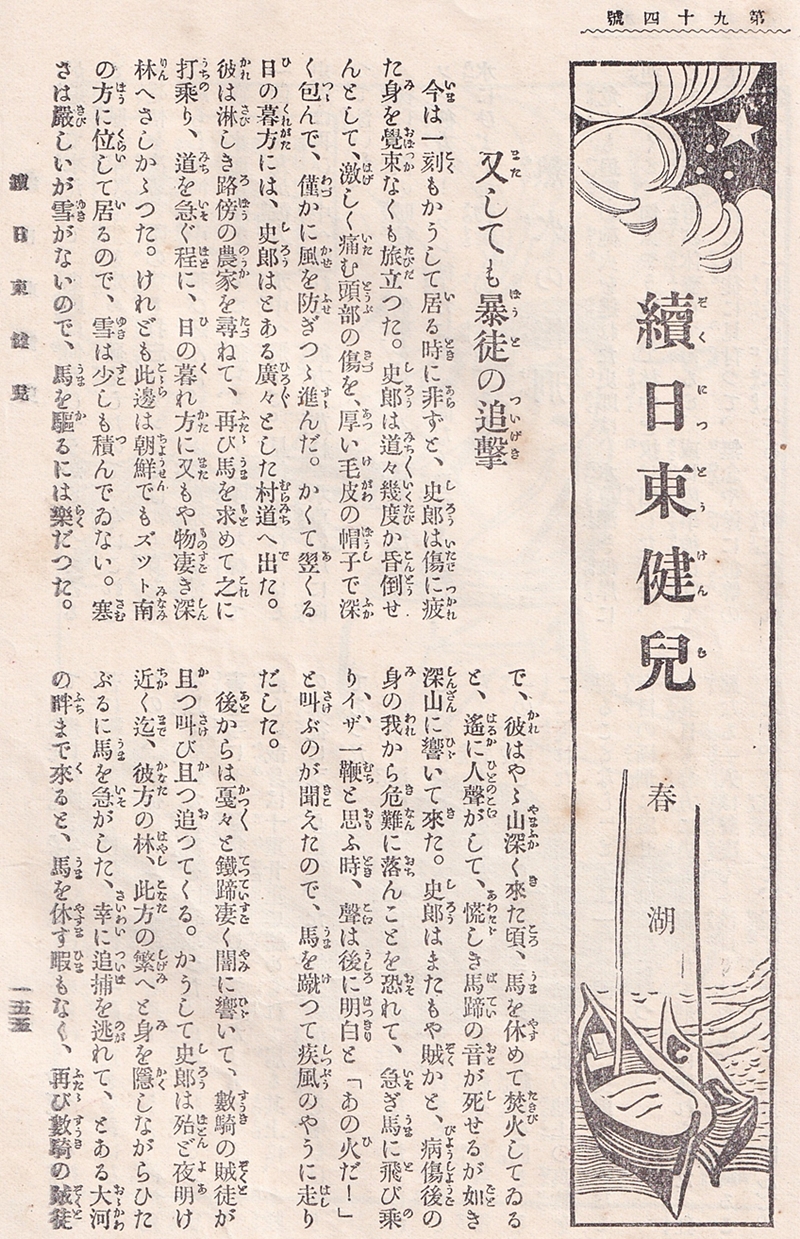 第九十四號
續日東健兒
春湖
又しても暴徒の追擊
今は一刻もかうして居る時に非ずと、史郎は傷に疲
た身を覺束なくも旅立つた。史郎は道々幾度か昏倒せ
んとして、激しく痛む頭部の傷を、厚い毛皮の帽子で深
く包んで、僅かに風を防ぎつゝ進んだ。かくて翌くる
日の暮方には、史郎はとある廣々とした村道へ出た。
彼は淋しき路傍の農家を尋ねて、再び馬を求めて之に
打乘り、道を急ぐ程に、日の暮れ方に又もや物凄き深
林へさしかゝつた。けれども此邊は朝鮮でもズット南
の方に位して居るので、雪は少しも積んでゐない。寒
さは嚴しいが雪がないので、馬を驅るには樂だつた。
で、彼はやゝ山深く來た頃、馬を休めて焚火してゐる
と、遙に人聲がして、慌しき馬蹄の音が死せるが如き
深山に響いて來た。史郎はまたもや賊かと、病傷後の
身の我から危難に落んことを恐れて、急ぎ馬に飛び乘
りイザ、一鞭と思ふ時、聲は後に明白と「あの火だ！」
と叫ぶのが聞えたので、馬を蹴つて疾風のやうに走り
だした。
後からは戞々と鐵蹄凄く闇に響いて、數騎の賊徒が
且つ叫び且つ追つてくる。かうして史郎は殆ど夜明け
近く迄、彼方の林、此方の繁へと身を隱しながらひた
ぶるに馬を急がした、幸に追捕を逃れて、とある大河
の畔まで來ると、馬を休す暇もなく、再び數騎の賊徒
續日東健兒
一五五